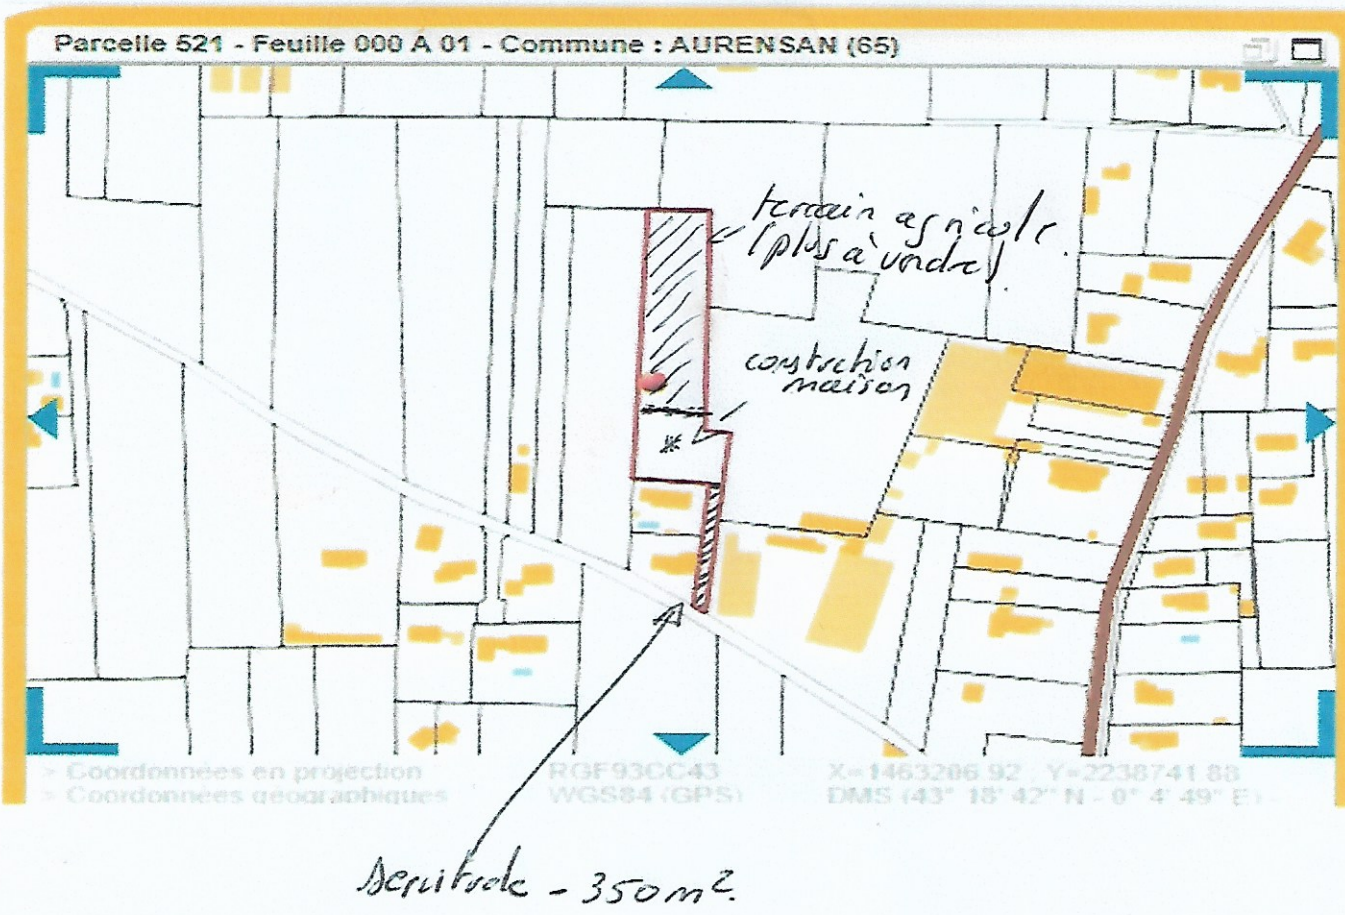 Parcelle 521 - Feuille 000 A 01 - Commune : AURENSAN (65)
terrain agricole
(plus à vendre)
construction
maison
> Coordonnées en projection RGF93CC43 X=1463206.92 , Y=2238741.88
> Coordonnées géographiques WGS84 (GPS) DMS (43° 18' 42" N - 0° 4' 49" E)
servitude - 350 m².